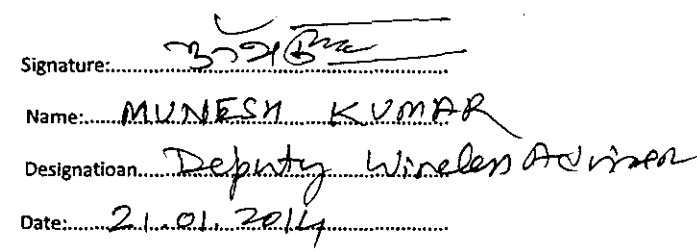 Signature:
Name: MUNESH KUMAR
Designatioan Deputy Wireless Adviser
Date: 21.01.2014